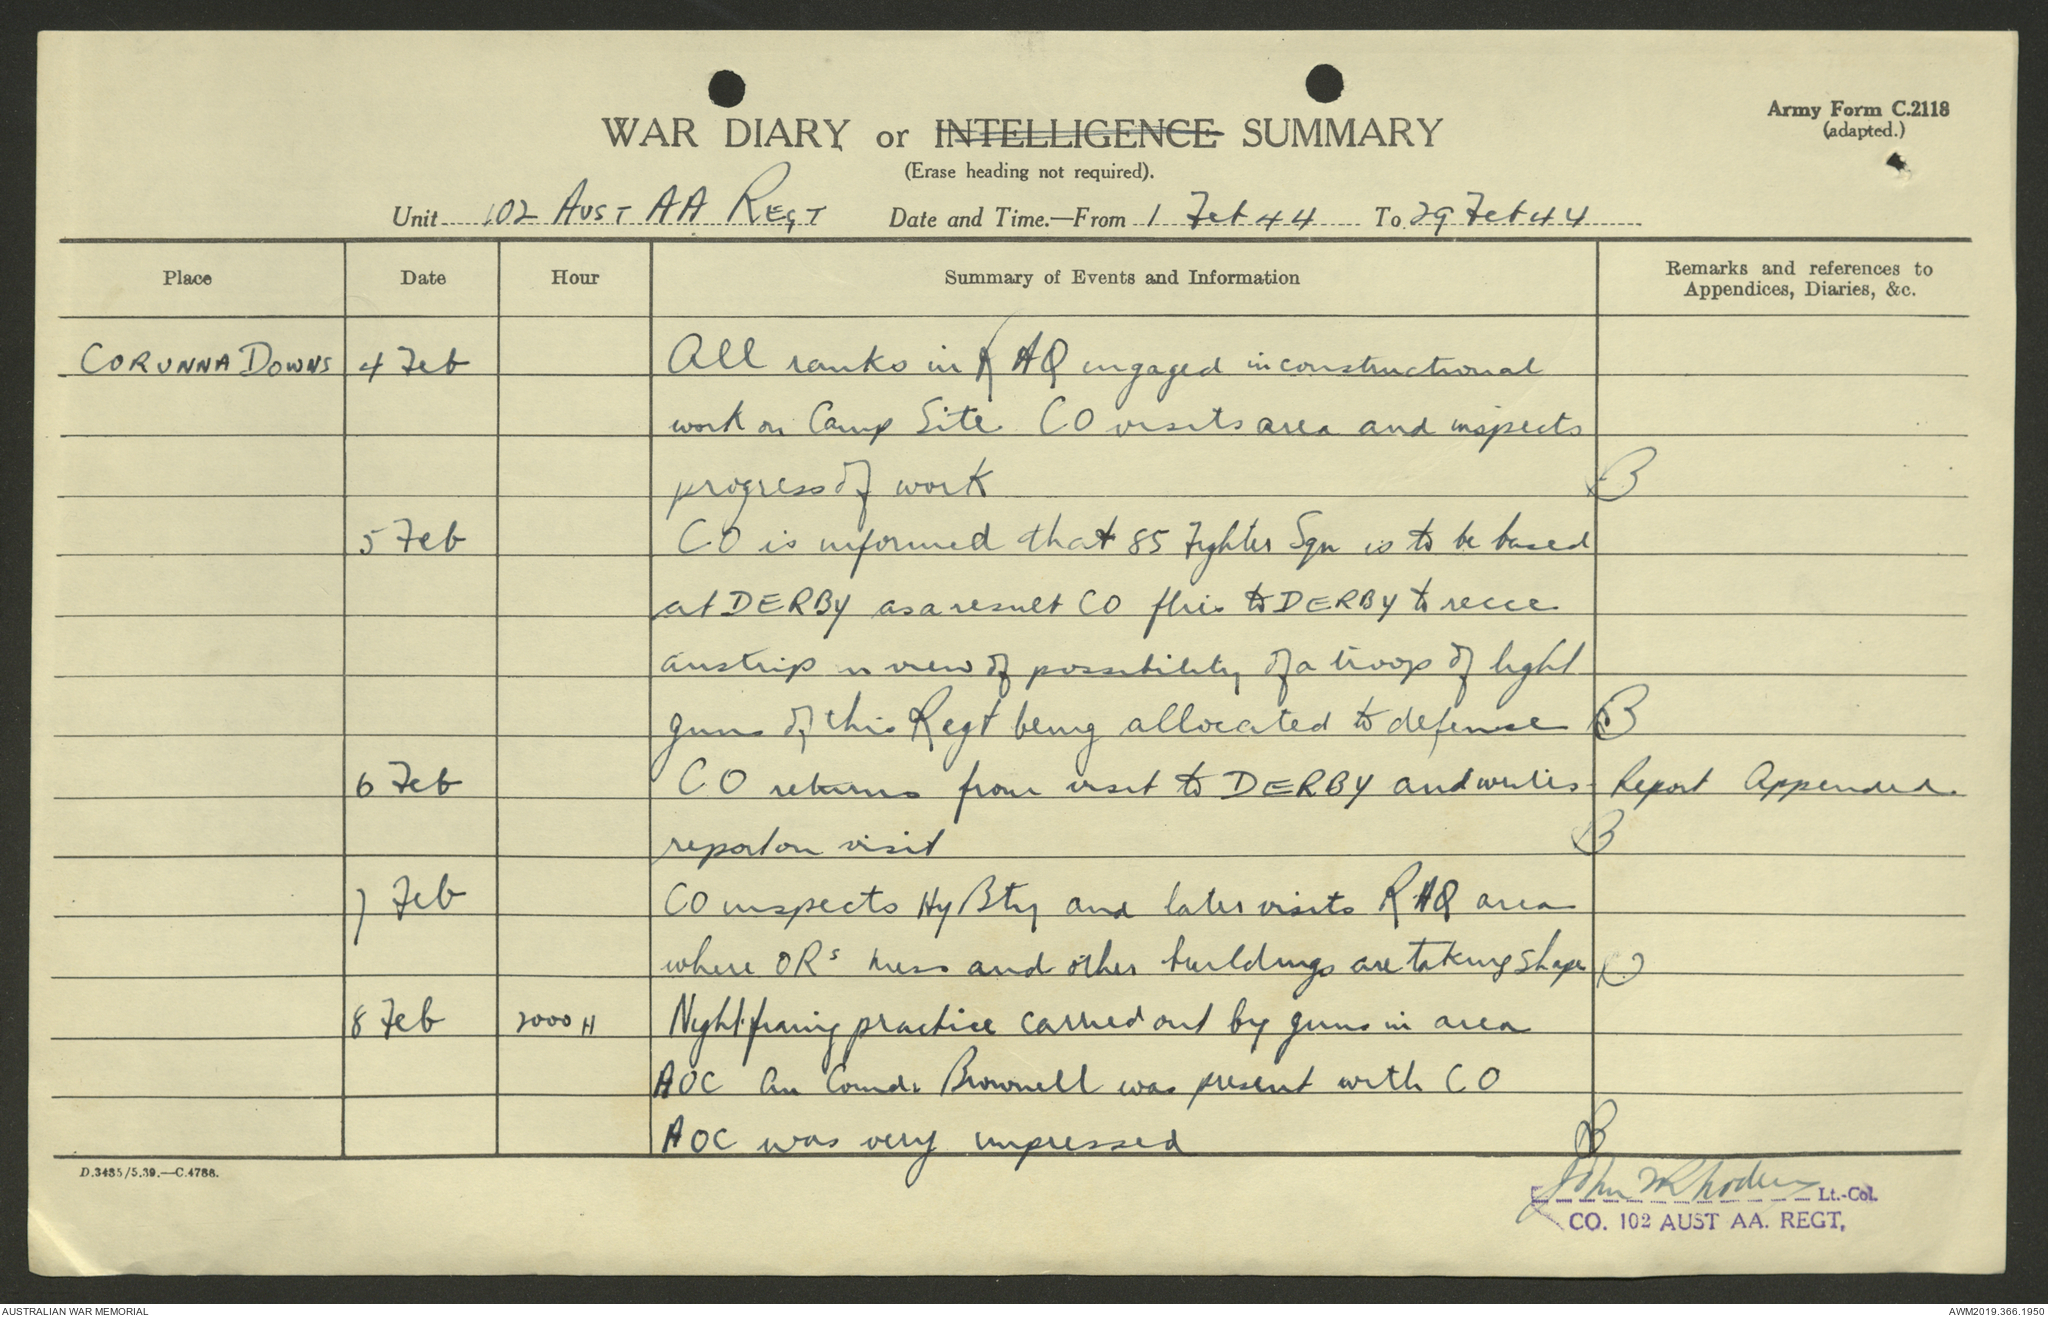 Army Form C.2118
(adapted.)
WAR DIARY or INTELLIGENCE SUMMARY
(Erase heading not required).
Unit 102 AUST AA REGT Date and Time.—From 1 Feb 44 To 29 Feb 44
Place Date Hour Summary of Events and Information Remarks and references to
Appendices, Diaries, &c.
CORUNNA DOWNS 4 Feb All ranks in RHQ engaged in constructional
work on Camp Site. CO visits area and inspects
progress of work
5 Feb CO is informed that 85 Fighter Sqn is to be based
at DERBY as a result CO flies to DERBY to recce
airstrip in view of possibility of a troop of light
guns of this Regt being allocated to defense
6 Feb CO returns from visit to DERBY and writes Report Appended.
report on visit
7 Feb CO inspects Hy Bty and later visits RHQ area
where ORs mess and other buildings are taking shape
8 Feb 2000 H Night firing practice carried out by guns in area
AOC Air Comd. Brownell was present with CO
AOC was very impressed
D.3485/5.39.—C.4788.
Lt.-Col.
CO. 102 AUST AA. REGT,
AUSTRALIAN WAR MEMORIAL AWM2019.366.1950